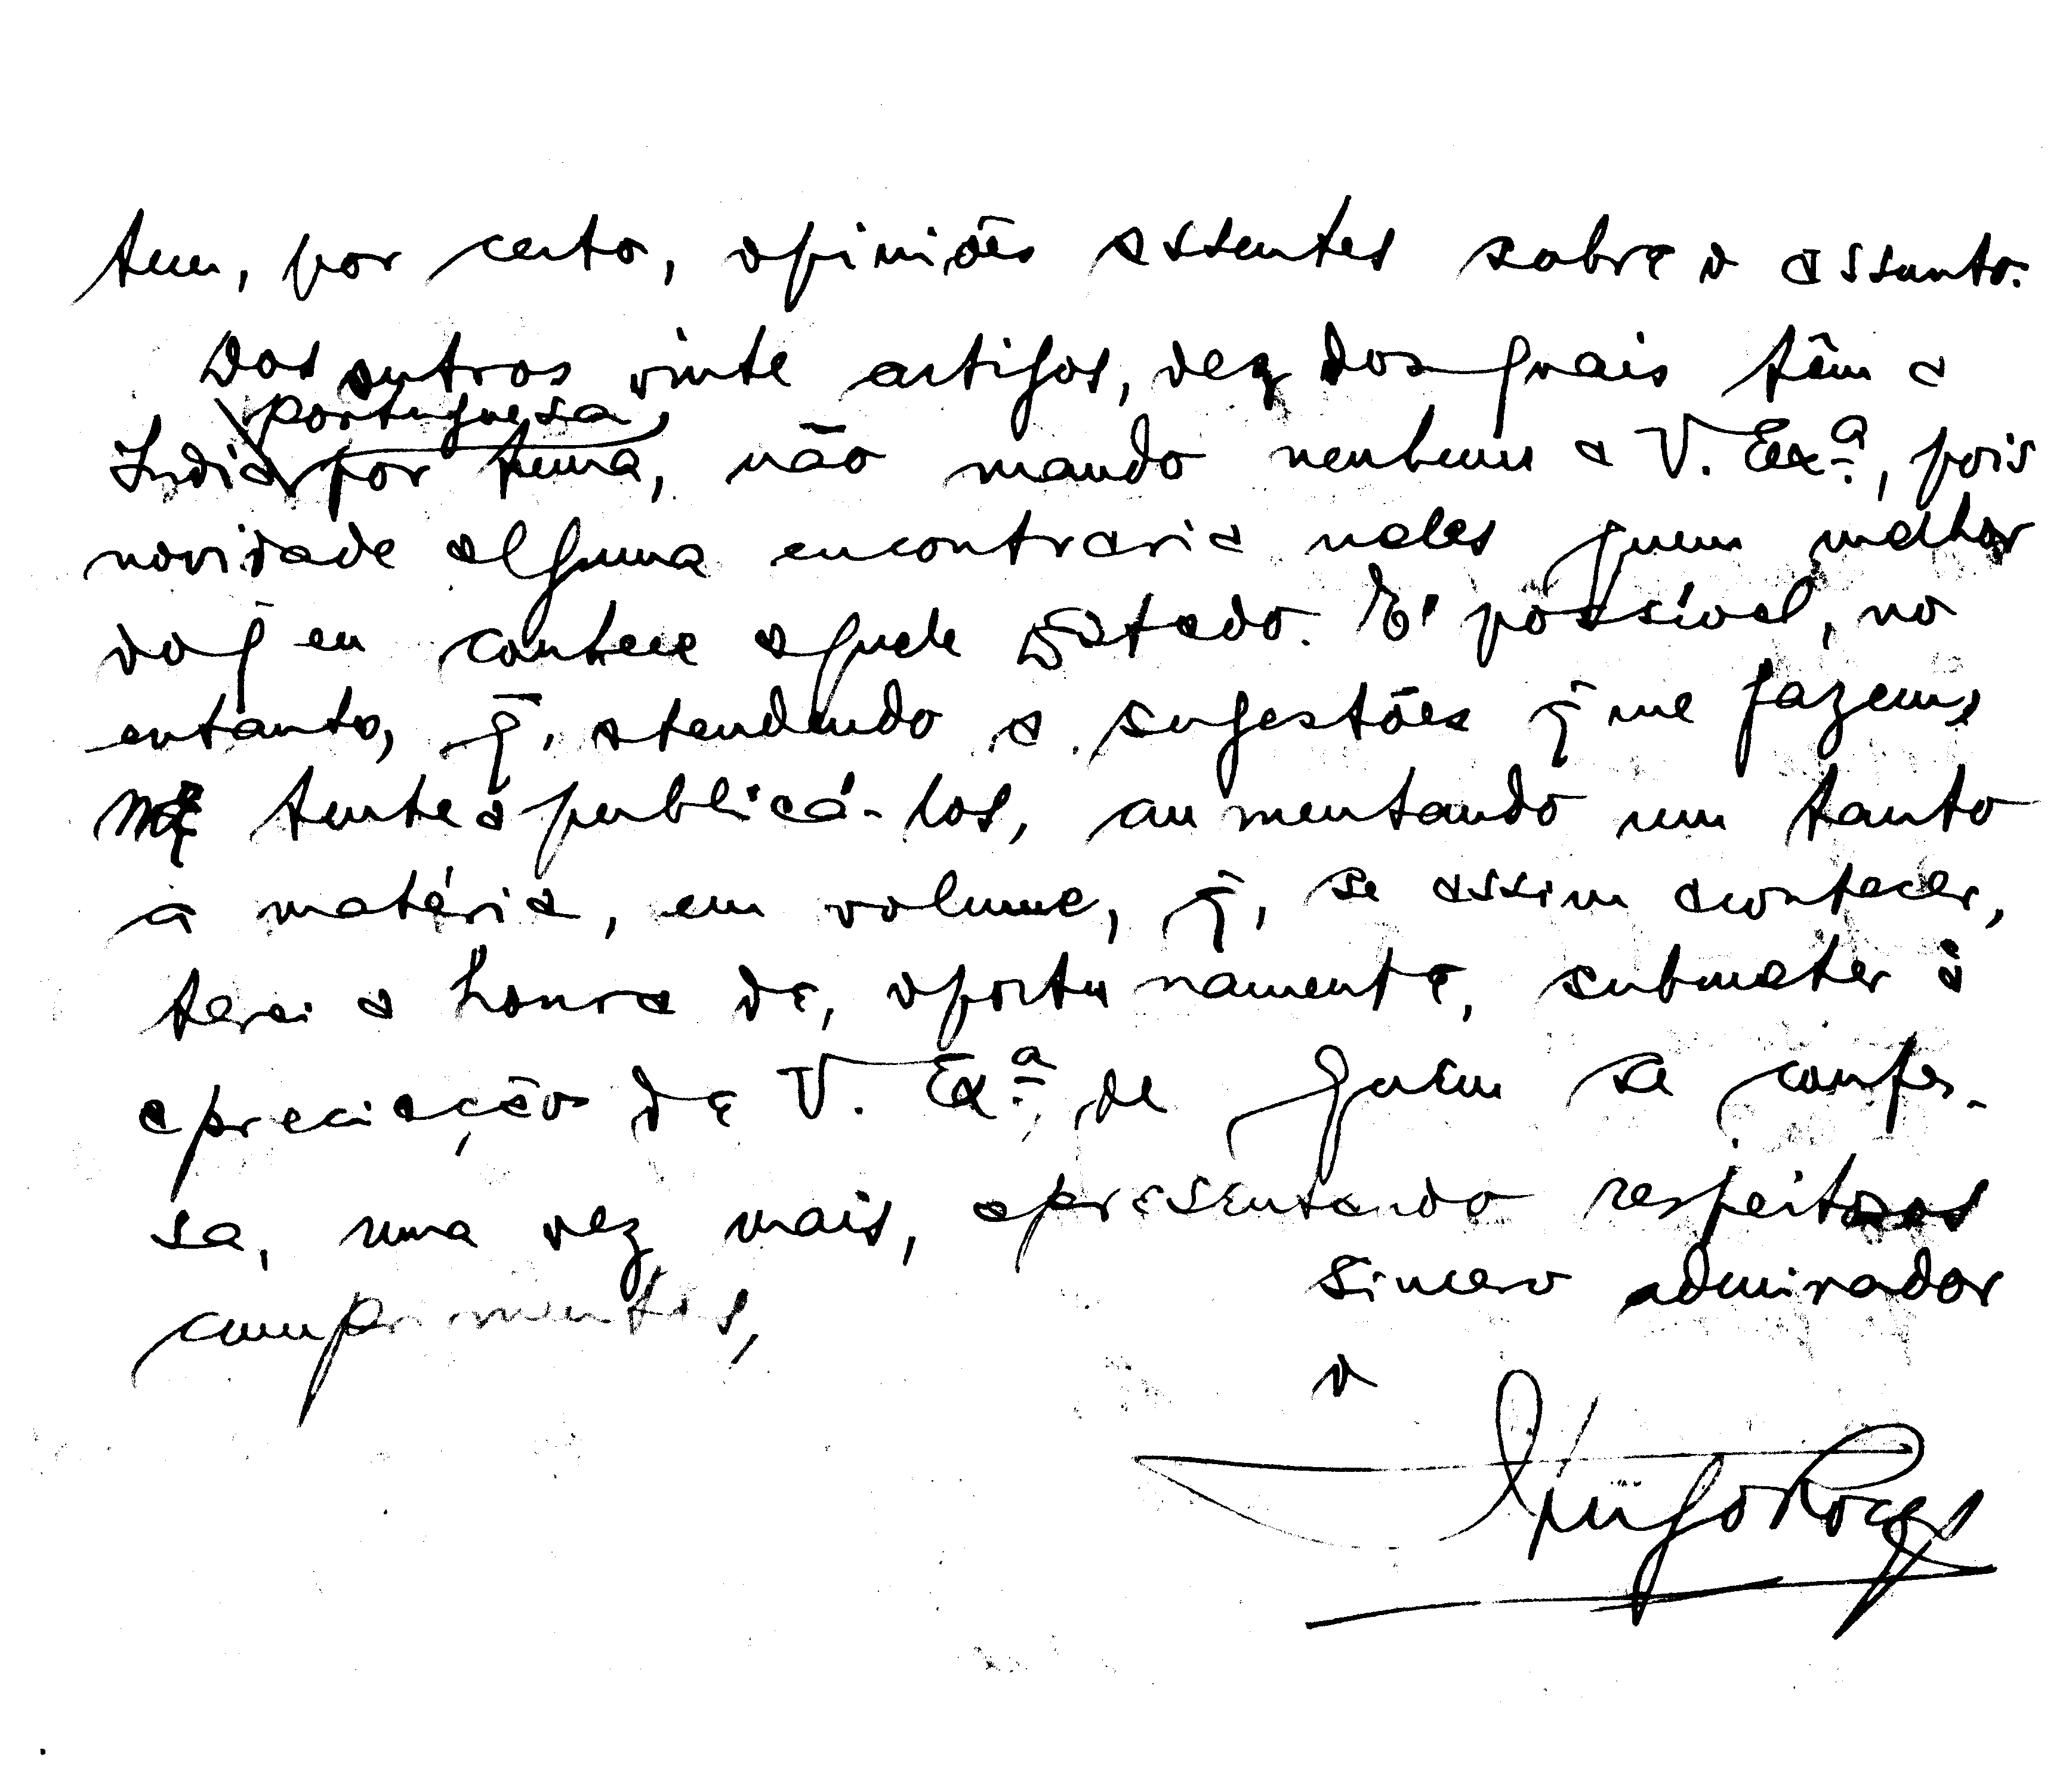 tem, por certo, opiniões assentes sobre o assunto.
Dos outros vinte artigos, dez dos quais têm a
portuguesa
India por tema, não mando nenhum a V. Exª, pois
novidade alguma encontraria neles quem melhor
do q̃ eu conhece aquele Estado. É possível, no
entanto, q̃, atendendo a sugestões q̃ me fazem,
tente a publicá-los, aumentando um tanto
a matéria, em volume, q̃, se assim acontecer,
terei a honra de, oportunamente, submeter à
apreciação de V. Exª de quem se confes-
sa, uma vez mais, apresentando respeitosos
cumprimentos,
sincero admirador
o
Hugo Rocha